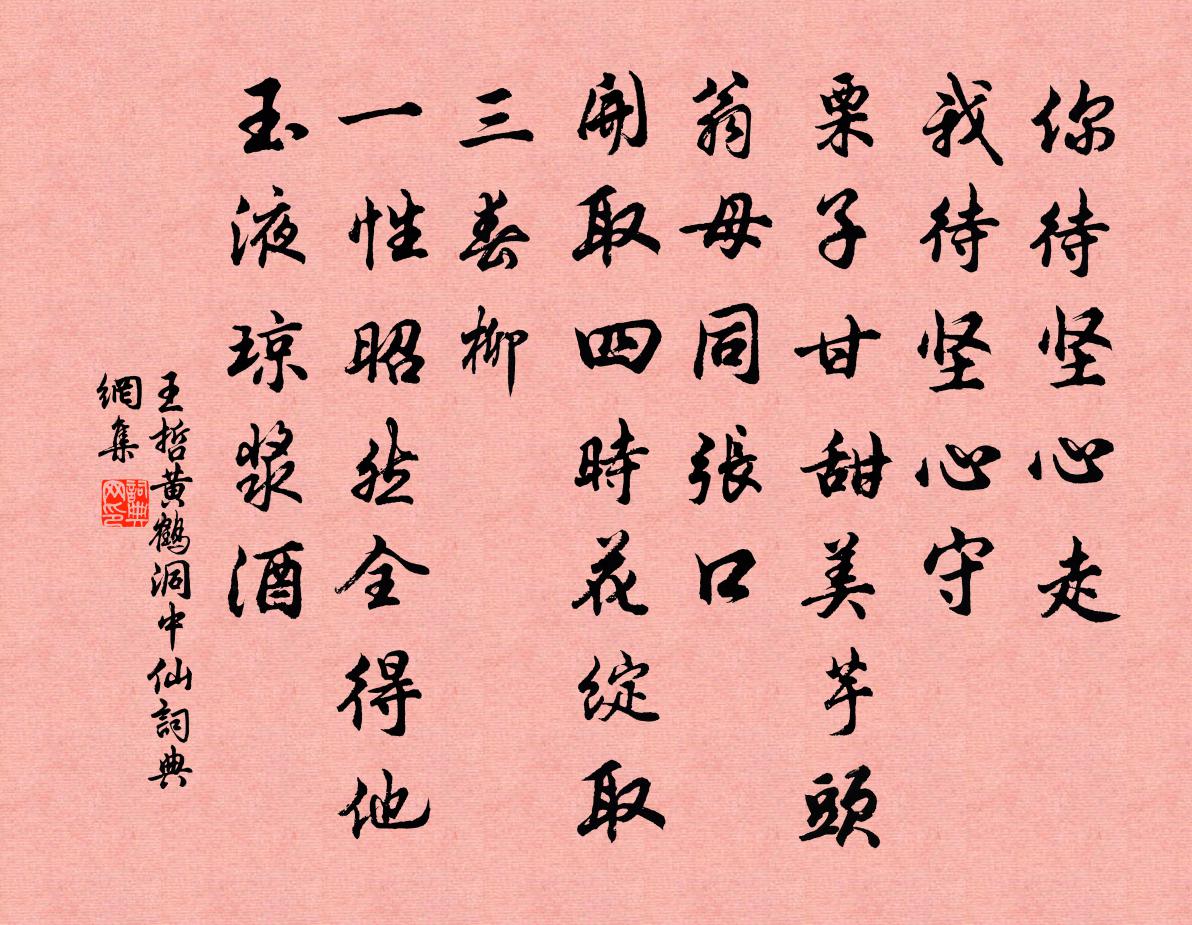 你待坚心走
我待坚心守
栗子甘甜美芋頭
翁母同張口
開取四時花綻取
三春柳
一性昭然全得他
玉液琼浆酒
王哲黄鶴洞中仙詞典
網集
詞典
网印